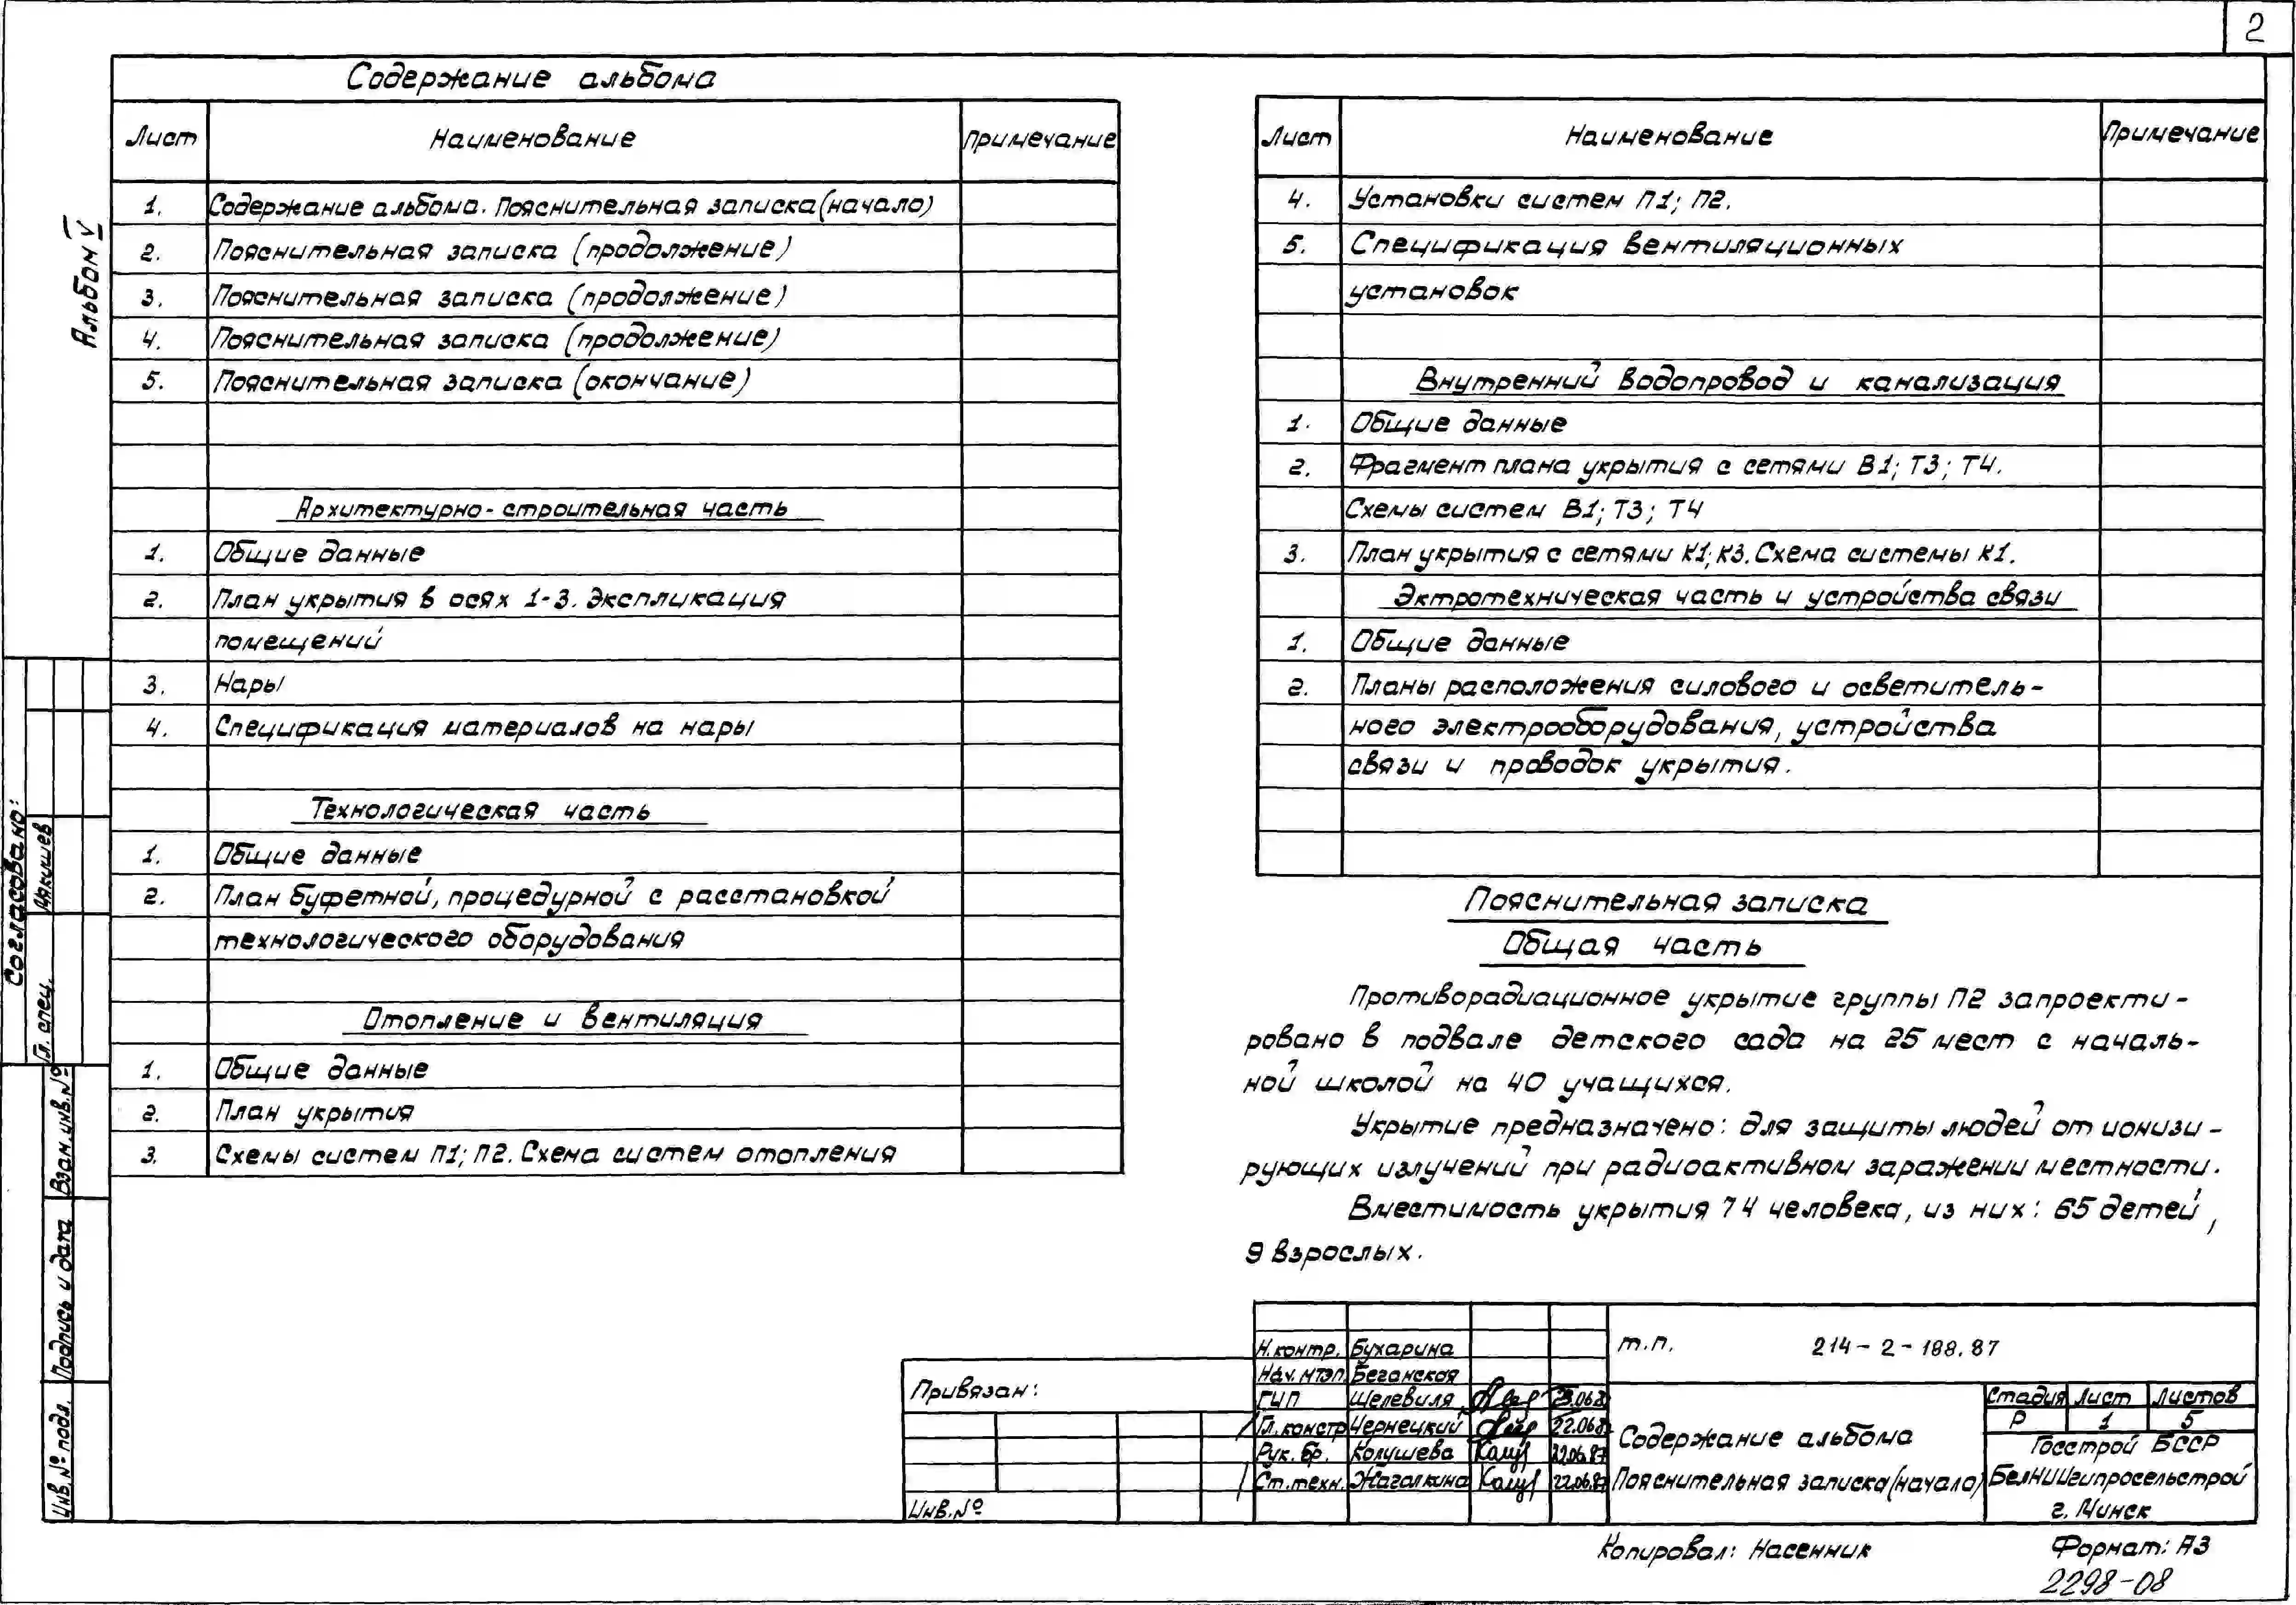 2
Альбом V
Содержание альбома
Лист Наименование Примечание
1. Содержание альбома. Пояснительная записка (начало)
2. Пояснительная записка (продолжение)
3. Пояснительная записка (продолжение)
4. Пояснительная записка (продолжение)
5. Пояснительная записка (окончание)
Архитектурно-строительная часть
1. Общие данные
2. План укрытия в осях 1-3. Экспликация
помещений
3. Нары
4. Спецификация материалов на нары
Технологическая часть
1. Общие данные
2. План буфетной, процедурной с расстановкой
технологического оборудования
Отопление и вентиляция
1. Общие данные
2. План укрытия
3. Схемы систем П1; П2. Схема систем отопления
Лист Наименование Примечание
4. Установки систем П1; П2.
5. Спецификация вентиляционных
установок
Внутренний водопровод и канализация
1. Общие данные
2. Фрагмент плана укрытия с сетями В1; Т3; Т4.
Схемы систем В1; Т3; Т4
3. План укрытия с сетями К1; К3. Схема системы К1.
Эктротехническая часть и устройства связи
1. Общие данные
2. Планы расположения силового и осветитель-
ного электрооборудования, устройства
связи и проводок укрытия.
Пояснительная записка
Общая часть
Противорадиационное укрытие группы П2 запроекти-
ровано в подвале детского сада на 25 мест с началь-
ной школой на 40 учащихся.
Укрытие предназначено: для защиты людей от ионизи-
рующих излучений при радиоактивном заражении местности.
Вместимость укрытия 74 человека, из них: 65 детей,
9 взрослых.
Согласовано:
Гл. спец. Мякишев
Взам. инв. №
Подпись и дата
Инв. № подл.
Привязан:
Инв. №
Н. контр. Бухарина
Нач. МТЭП Беганская
ГИП Щелевиля 23.06.8
Гл. констр Чернецкий 22.068
Рук. бр. Колушева 22.06.87
Ст. техн. Жагалкина 22.06.87
т.п. 214-2-188.87
Содержание альбома
Пояснительная записка (начало)
Стадия Лист Листов
Р 1 5
Госстрой БССР
БелНИИгипросельстрой
г. Минск
Копировал: Насенник
Формат: А3
2298-08